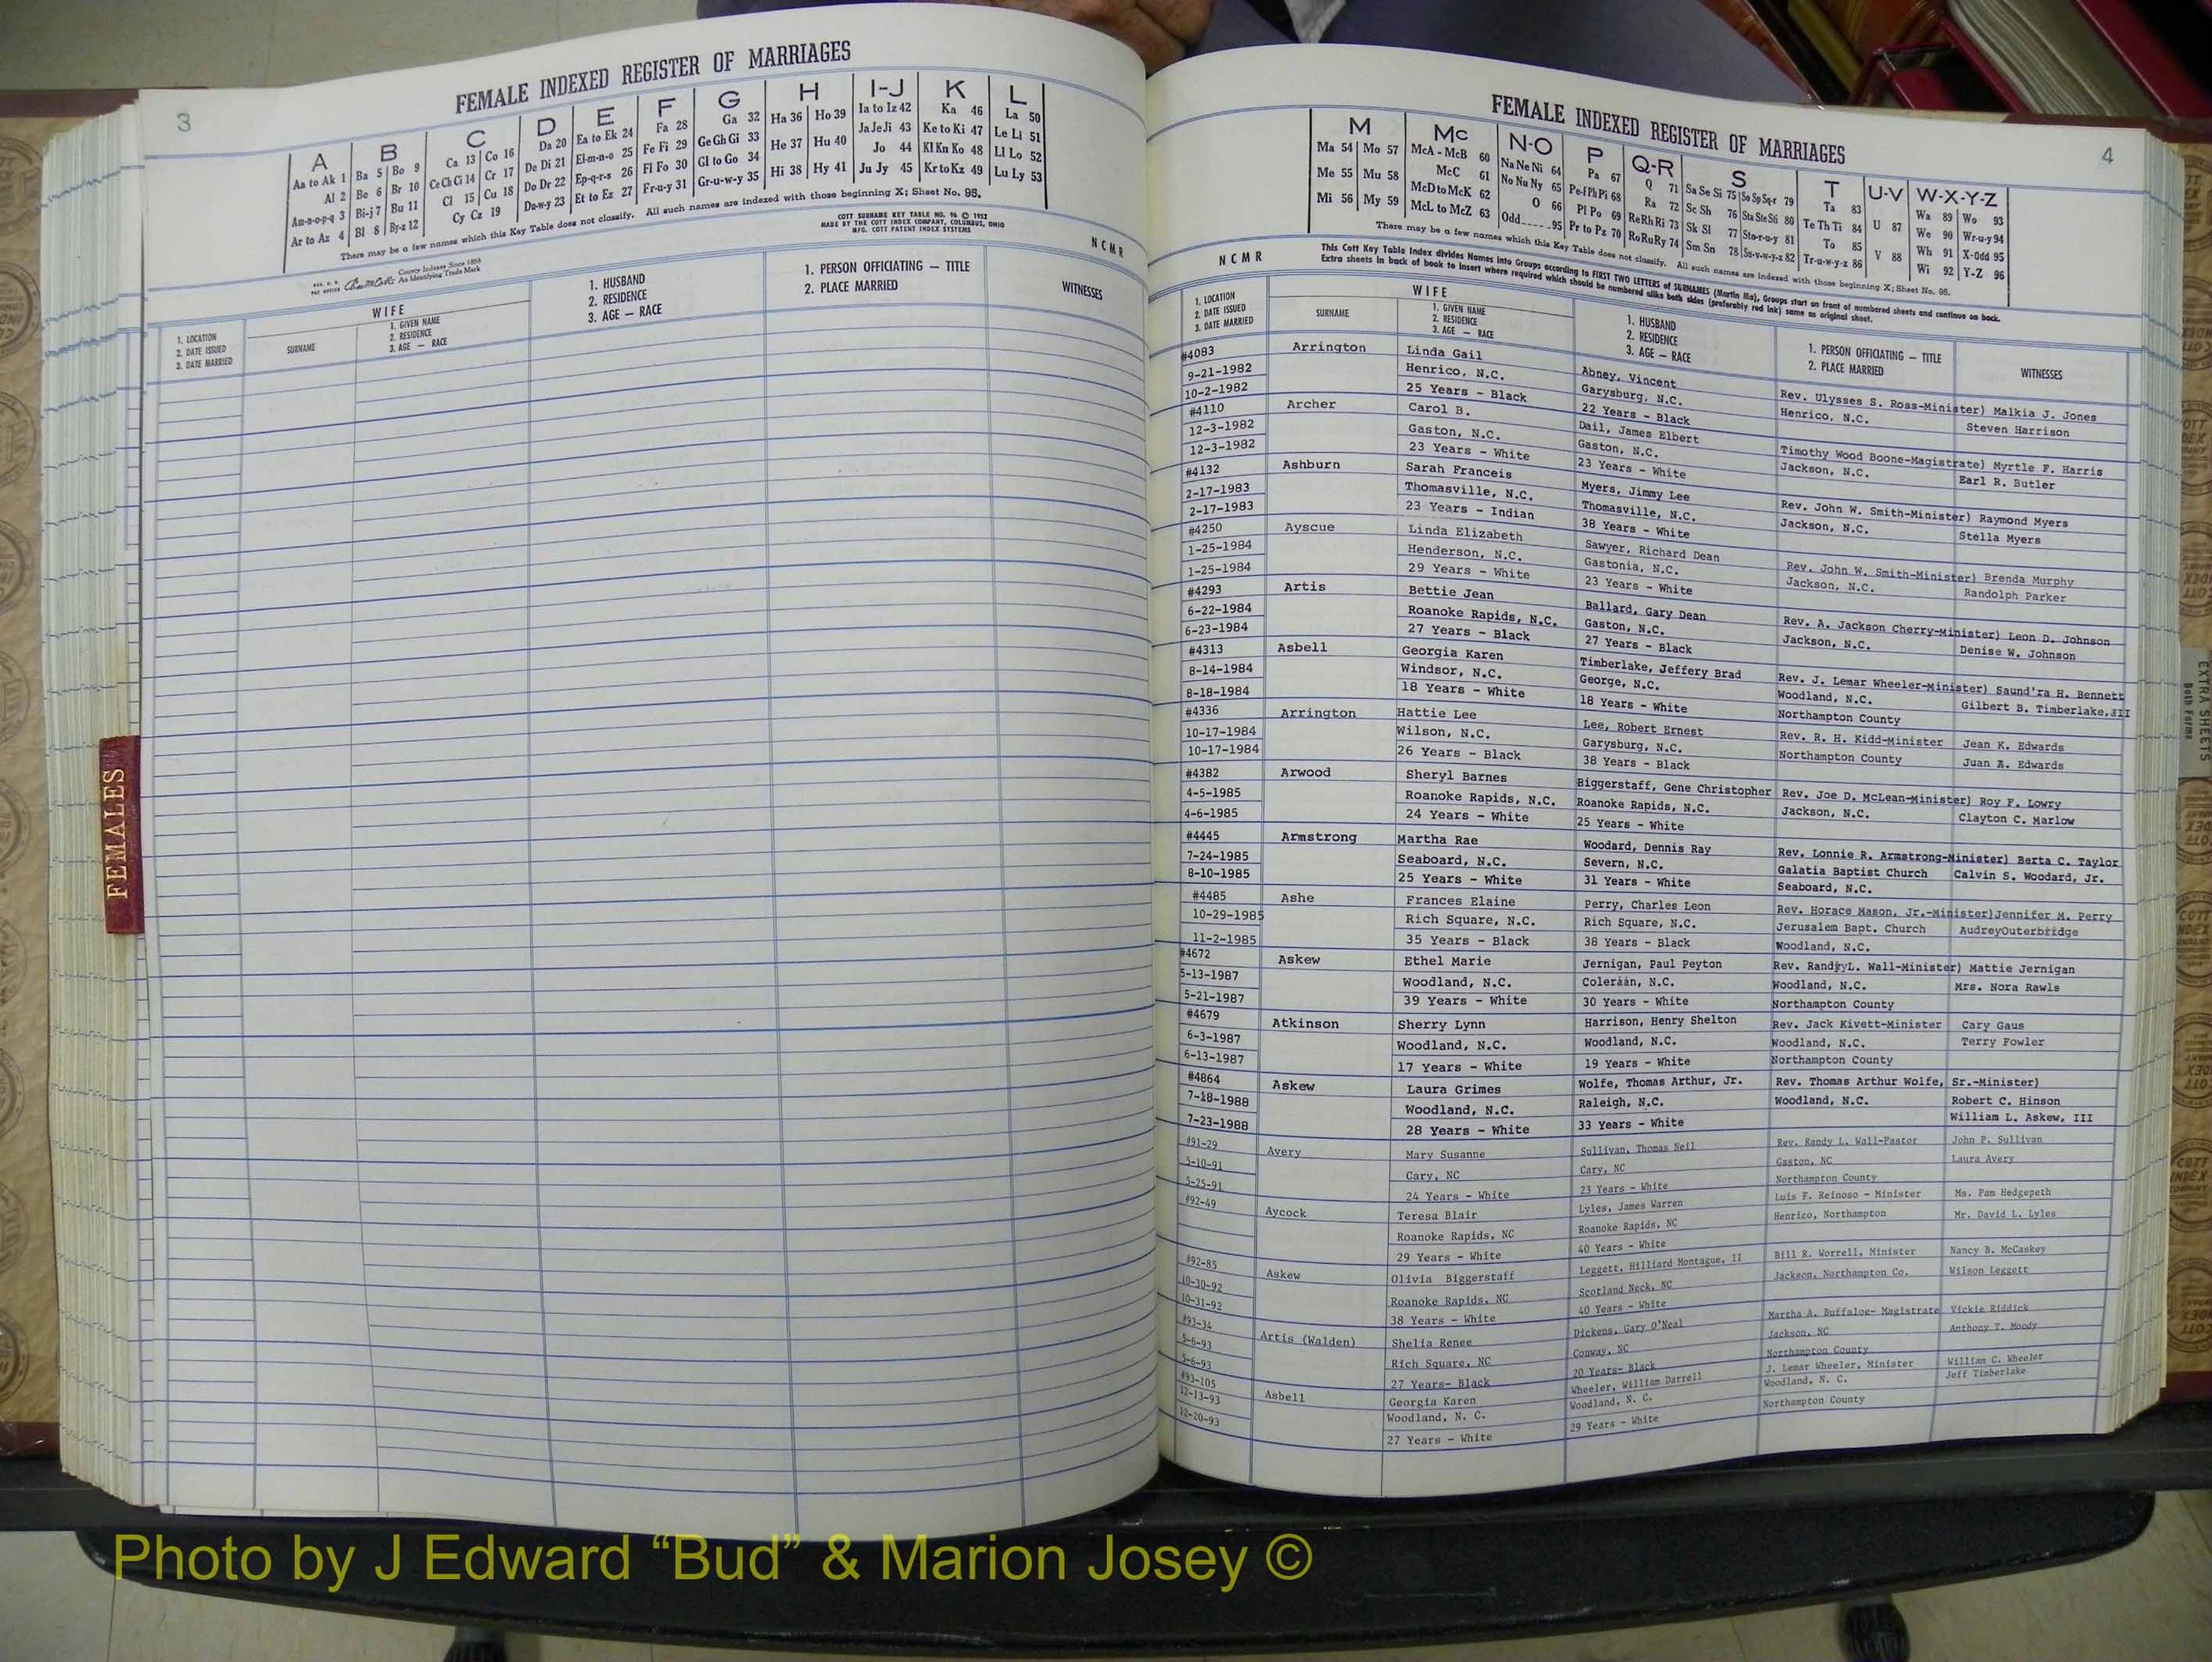 3
FEMALE INDEXED REGISTER OF MARRIAGES
A B C D E F G H I-J K L
Aa to Ak 1 Ba 5 Bo 9 Ca 13 Co 16 Da 20 Ea to Ek 24 Fa 28 Ga 32 Ha 36 Ho 39 Ia to Iz 42 Ka 46 La 50
Al 2 Be 6 Br 10 Ce Ch Ci 14 Cr 17 De Di 21 El-m-n-o 25 Fe Fi 29 Ge Gh Gi 33 He 37 Hu 40 Ja Je Ji 43 Ke to Ki 47 Le Li 51
Am-n-o-p-q 3 Bi-j 7 Bu 11 Cl 15 Cu 18 Do Dr 22 Ep-q-r-s 26 Fl Fo 30 Gl to Go 34 Hi 38 Hy 41 Jo 44 Kl Kn Ko 48 Ll Lo 52
Ar to Az 4 Bl 8 By-z 12 Cy Cz 19 Du-w-y 23 Et to Ez 27 Fr-u-y 31 Gr-u-w-y 35 Ju Jy 45 Kr to Kz 49 Lu Ly 53
There may be a few names which this Key Table does not classify. All such names are indexed with those beginning X; Sheet No. 95.
COTT SURNAME KEY TABLE NO. 96 © 1952
MADE BY THE COTT INDEX COMPANY, COLUMBUS, OHIO
MFG. COTT PATENT INDEX SYSTEMS
County Indexes Since 1888
An Identifying Trade Mark
N C M R
1. LOCATION
2. DATE ISSUED
3. DATE MARRIED
WIFE
SURNAME
1. GIVEN NAME
2. RESIDENCE
3. AGE — RACE
1. HUSBAND
2. RESIDENCE
3. AGE — RACE
1. PERSON OFFICIATING — TITLE
2. PLACE MARRIED
WITNESSES
FEMALES
4
FEMALE INDEXED REGISTER OF MARRIAGES
M Mc N-O P Q-R S T U-V W-X-Y-Z
Ma 54 Mo 57 McA - McB 60 Na Ne Ni 64 Pa 67 Q 71 Sa Se Si 75 So Sp Sq-r 79 Ta 83 U 87 Wa 89 Wo 93
Me 55 Mu 58 McC 61 No Nu Ny 65 Pe-f Ph Pi 68 Ra 72 Sc Sh 76 Sta Ste Sti 80 Te Th Ti 84 V 88 We 90 Wr-u-y 94
Mi 56 My 59 McD to McK 62 O 66 Pl Po 69 Re Rh Ri 73 Sk Sl 77 Sto-r-u-y 81 To 85 Wh 91 X-Odd 95
McL to McZ 63 Odd 95 Pr to Pz 70 Ro Ru Ry 74 Sm Sn 78 Su-v-w-y-z 82 Tr-u-w-y-z 86 Wi 92 Y-Z 96
There may be a few names which this Key Table does not classify. All such names are indexed with those beginning X; Sheet No. 95.
This Cott Key Table Index divides Names into Groups according to FIRST TWO LETTERS of SURNAMES (Martin Ma), Groups start on front of numbered sheets and continue on back.
Extra sheets in back of book to insert where required which should be numbered alike both sides (preferably red ink) same as original sheet.
N C M R
1. LOCATION
2. DATE ISSUED
3. DATE MARRIED
WIFE
SURNAME
1. GIVEN NAME
2. RESIDENCE
3. AGE — RACE
1. HUSBAND
2. RESIDENCE
3. AGE — RACE
1. PERSON OFFICIATING — TITLE
2. PLACE MARRIED
WITNESSES
#4083 Arrington Linda Gail Abney, Vincent Rev. Ulysses S. Ross-Minister) Malkia J. Jones
9-21-1982 Henrico, N.C. Garysburg, N.C. Henrico, N.C. Steven Harrison
10-2-1982 25 Years - Black 22 Years - Black
#4110 Archer Carol B. Dail, James Elbert Timothy Wood Boone-Magistrate) Myrtle F. Harris
12-3-1982 Gaston, N.C. Gaston, N.C. Jackson, N.C. Earl R. Butler
12-3-1982 23 Years - White 23 Years - White
#4132 Ashburn Sarah Franceis Myers, Jimmy Lee Rev. John W. Smith-Minister) Raymond Myers
2-17-1983 Thomasville, N.C. Thomasville, N.C. Jackson, N.C. Stella Myers
2-17-1983 23 Years - Indian 38 Years - White
#4250 Ayscue Linda Elizabeth Sawyer, Richard Dean Rev. John W. Smith-Minister) Brenda Murphy
1-25-1984 Henderson, N.C. Gastonia, N.C. Jackson, N.C. Randolph Parker
1-25-1984 29 Years - White 23 Years - White
#4293 Artis Bettie Jean Ballard, Gary Dean Rev. A. Jackson Cherry-Minister) Leon D. Johnson
6-22-1984 Roanoke Rapids, N.C. Gaston, N.C. Jackson, N.C. Denise W. Johnson
6-23-1984 27 Years - Black 27 Years - Black
#4313 Asbell Georgia Karen Timberlake, Jeffery Brad Rev. J. Lemar Wheeler-Minister) Saund'ra H. Bennett
8-14-1984 Windsor, N.C. George, N.C. Woodland, N.C. Gilbert B. Timberlake,III
8-18-1984 18 Years - White 18 Years - White Northampton County
#4336 Arrington Hattie Lee Lee, Robert Ernest Rev. R. H. Kidd-Minister Jean K. Edwards
10-17-1984 Wilson, N.C. Garysburg, N.C. Northampton County Juan A. Edwards
10-17-1984 26 Years - Black 38 Years - Black
#4382 Arwood Sheryl Barnes Biggerstaff, Gene Christopher Rev. Joe D. McLean-Minister) Roy F. Lowry
4-5-1985 Roanoke Rapids, N.C. Roanoke Rapids, N.C. Jackson, N.C. Clayton C. Marlow
4-6-1985 24 Years - White 25 Years - White
#4445 Armstrong Martha Rae Woodard, Dennis Ray Rev. Lonnie R. Armstrong-Minister) Berta C. Taylor
7-24-1985 Seaboard, N.C. Severn, N.C. Galatia Baptist Church Calvin S. Woodard, Jr.
8-10-1985 25 Years - White 31 Years - White Seaboard, N.C.
#4485 Ashe Frances Elaine Perry, Charles Leon Rev. Horace Mason, Jr.-Minister)Jennifer M. Perry
10-29-1985 Rich Square, N.C. Rich Square, N.C. Jerusalem Bapt. Church AudreyOuterbridge
11-2-1985 35 Years - Black 38 Years - Black Woodland, N.C.
#4672 Askew Ethel Marie Jernigan, Paul Peyton Rev. RandyL. Wall-Minister) Mattie Jernigan
5-13-1987 Woodland, N.C. N.C. Woodland, N.C. Mrs. Nora Rawls
5-21-1987 39 Years - White 30 Years - White Northampton County
#4679 Atkinson Sherry Lynn Harrison, Henry Shelton Rev. Jack Kivett-Minister Cary Gaus
6-3-1987 Woodland, N.C. Woodland, N.C. Woodland, N.C. Terry Fowler
6-13-1987 17 Years - White 19 Years - White Northampton County
#4864 Askew Laura Grimes Wolfe, Thomas Arthur, Jr. Rev. Thomas Arthur Wolfe, Sr.-Minister)
7-18-1988 Woodland, N.C. Raleigh, N.C. Woodland, N.C. Robert C. Hinson
7-23-1988 28 Years - White 33 Years - White William L. Askew, III
#91-29 Avery Mary Susanne Sullivan, Thomas Neil Rev. Randy L. Wall-Pastor John P. Sullivan
5-10-91 Cary, NC Cary, NC Gaston, NC Laura Avery
5-25-91 24 Years - White 23 Years - White Northampton County
#92-49 Aycock Teresa Blair Lyles, James Warren Luis F. Reinoso - Minister Ms. Pam Hedgepeth
Roanoke Rapids, NC Roanoke Rapids, NC Henrico, Northampton Mr. David L. Lyles
29 Years - White 40 Years - White
#92-85 Askew Olivia Biggerstaff Leggett, Hilliard Montague, II Bill R. Worrell, Minister Nancy B. McCaskey
10-30-92 Roanoke Rapids, NC Scotland Neck, NC Jackson, Northampton Co. Wilson Leggett
10-31-92 38 Years - White 40 Years - White
#93-34 Artis (Walden) Shelia Renee Dickens, Gary O'Neal Martha A. Buffaloe- Magistrate Vickie Riddick
5-6-93 Rich Square, NC Conway, NC Jackson, NC Anthony T. Moody
5-6-93 27 Years- Black 20 Years- Black Northampton County
#93-105 Asbell Georgia Karen Wheeler, William Darrell J. Lemar Wheeler, Minister William C. Wheeler
12-13-93 Woodland, N. C. Woodland, N. C. Woodland, N. C. Jeff Timberlake
12-20-93 27 Years - White 29 Years - White Northampton County
EXTRA SHEETS
Both Forms
Photo by J Edward “Bud” & Marion Josey ©